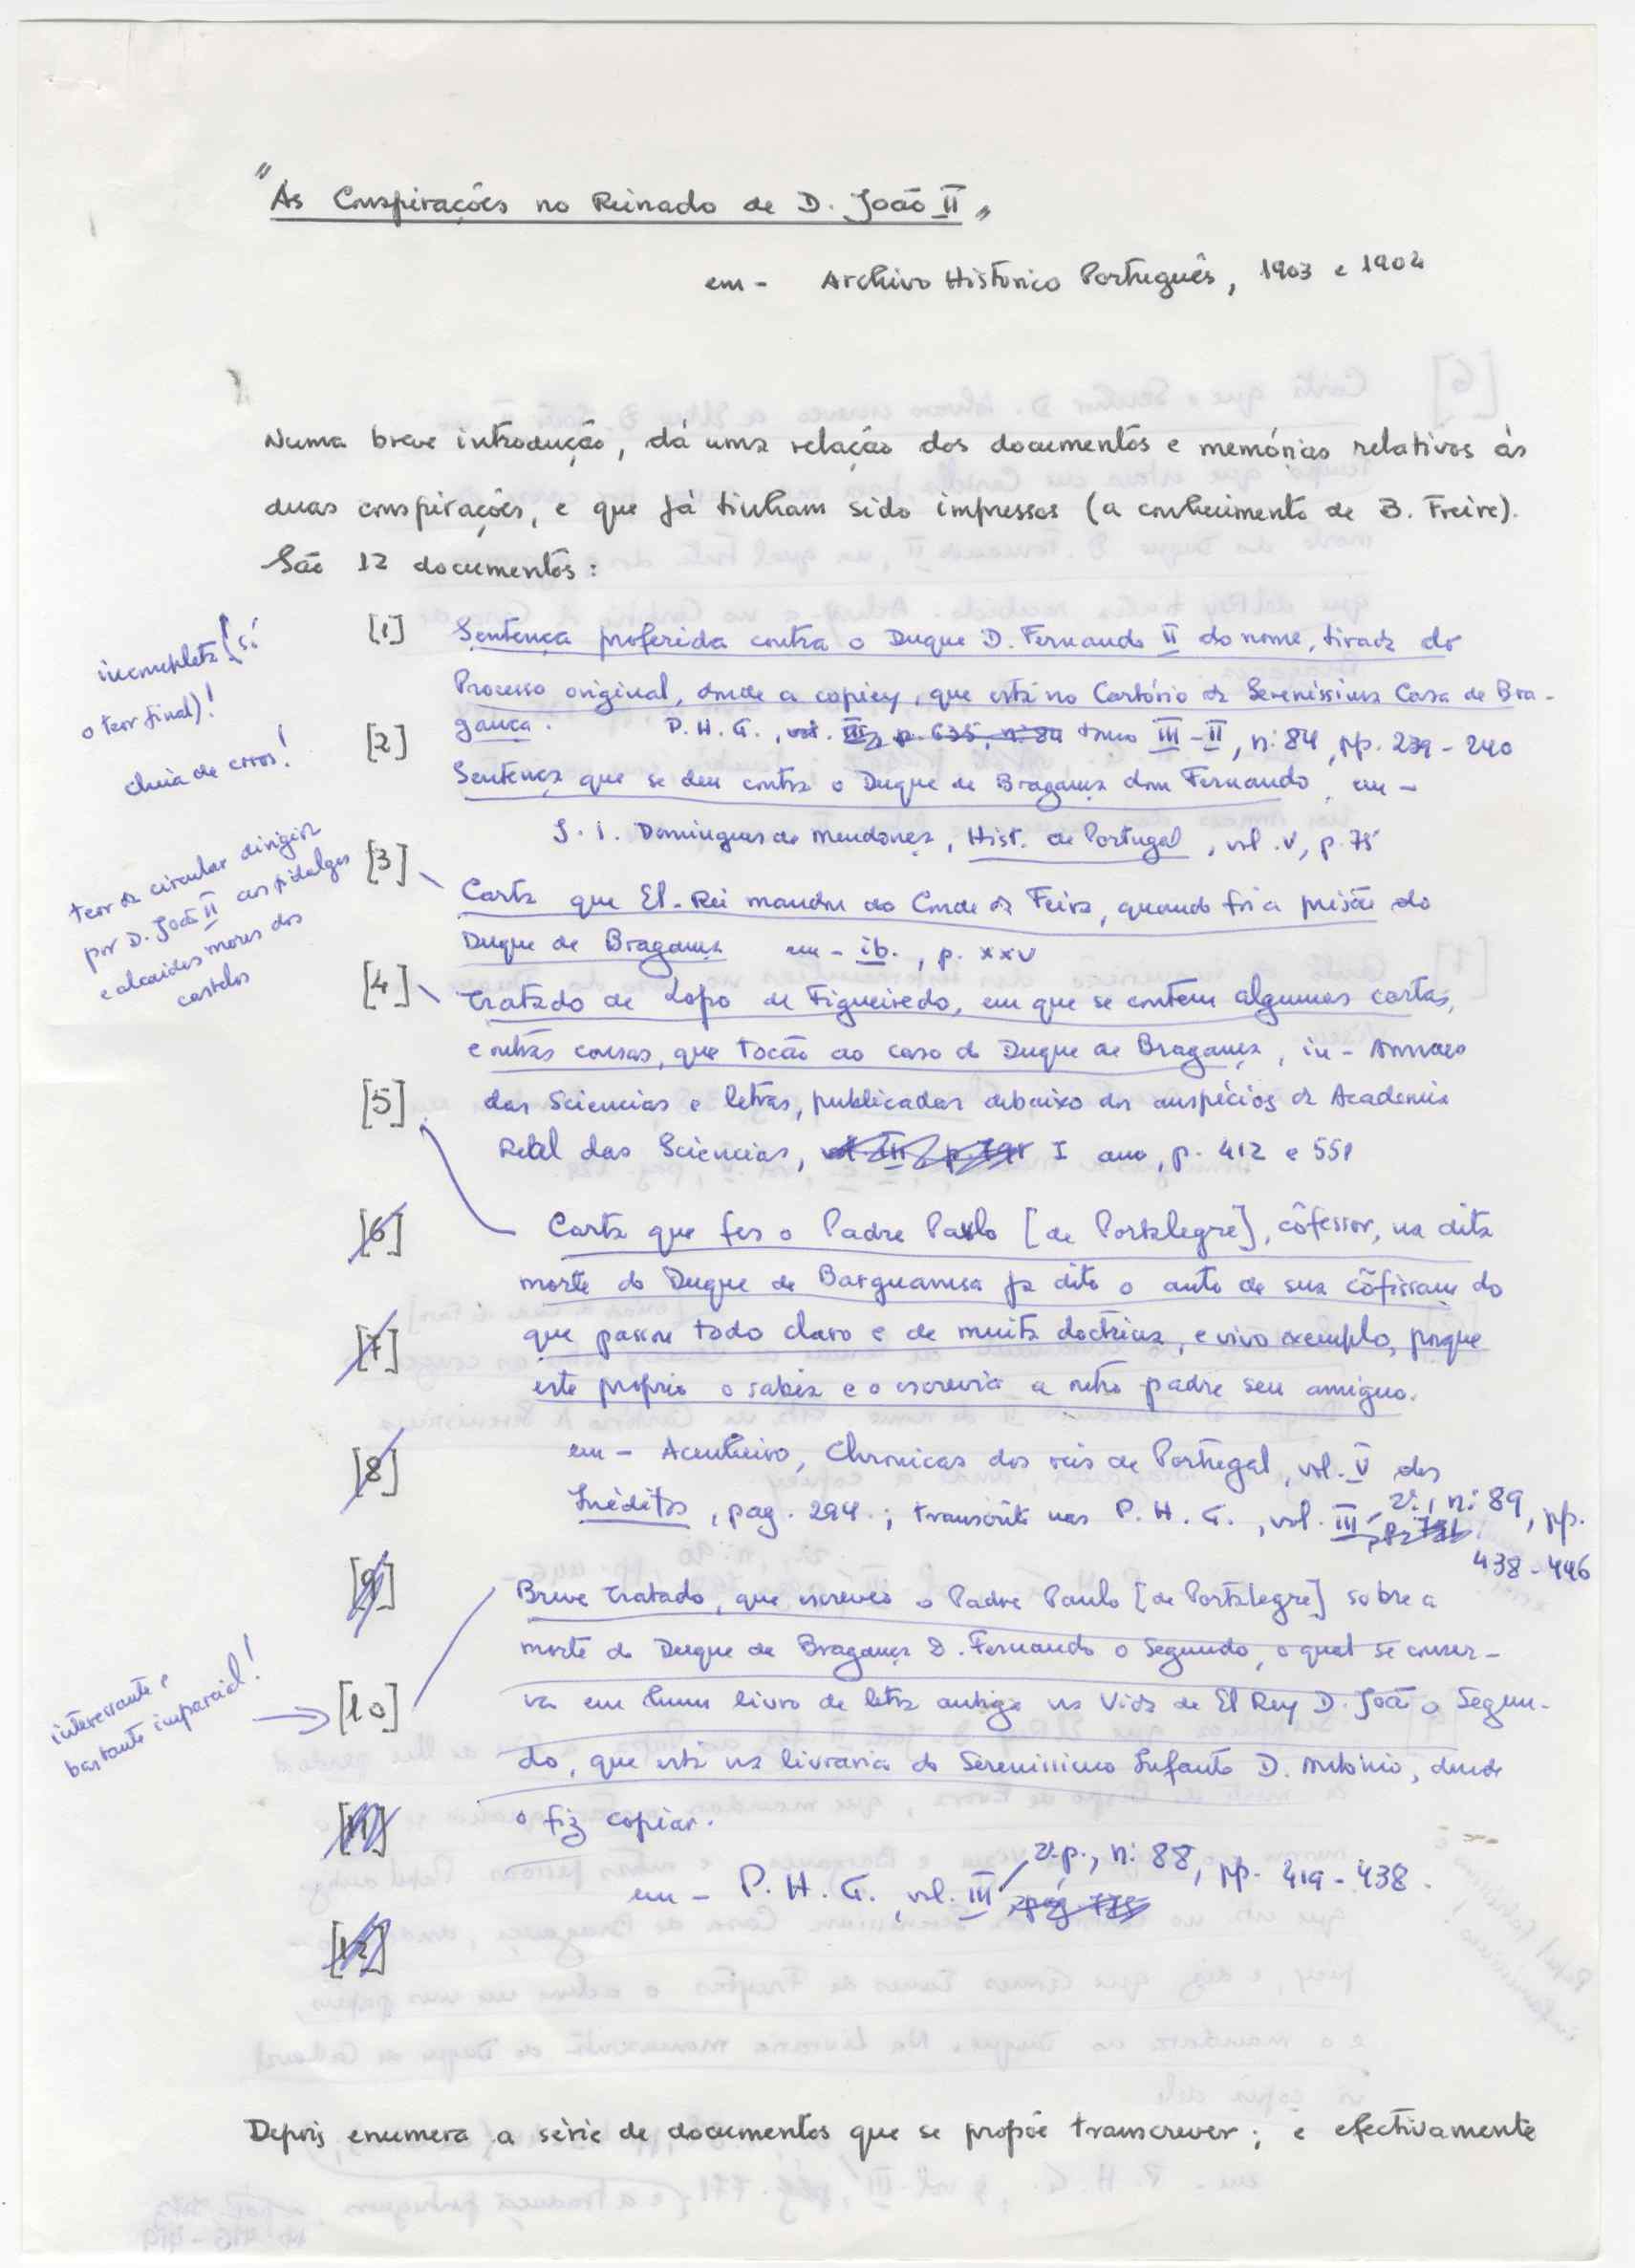 "As Conspirações no Reinado de D. João II"
em - Archivo Historico Português, 1903 e 1904
Numa breve introdução, dá uma relação dos documentos e memórias relativos às
duas conspirações, e que já tinham sido impressos (a conhecimento de B. Freire).
São 12 documentos:
incompleta (só
o teor final)!
[1] Sentença proferida contra o Duque D. Fernando II do nome, tirada do
Processo original, donde a copiey, que está no Cartório da Sereníssima Casa de Bra-
gança. P. H. G., vol. III, p. 635, n: 84 tomo III-II, n: 84, pp. 239-240
cheia de erros!
[2] Sentença que se deu contra o Duque de Bragança dom Fernando, em -
J. I. Domingues de Mendonça, Hist. de Portugal, vol. V, p. 75
teor da circular dirigida
por D. João II aos fidalgos
e alcaides mores dos
castelos
[3] Carta que El-Rei mandou ao Conde da Feira, quando foi a prisão do
Duque de Bragança em - ib., p. XXV
[4] Tratado de Lopo de Figueiredo, em que se contem algumas cartas,
e outras cousas, que tocão ao caso do Duque de Bragança, in - Annaes
das Sciencias e letras, publicadas debaixo dos auspícios da Academia
Real das Sciencias, I ano, p. 412 e 551
[5] Carta que fes o Padre Paulo [de Portalegre], cõfessor, na dita
morte do Duque de Barguamsa ja dito o auto de sua cõfissam do
que passou todo claro e de muita doctrina, e vivo exemplo, porque
este proprio o sabia e o escrevia a outro padre seu amiguo.
em - Acenheiro, Chronicas dos reis de Portugal, vol. V dos
Inéditos, pag. 294.; transcrito nas P. H. G., vol. III, 2ª, n: 89, pp.
438-446
[6]
[7]
[8]
[9]
interessante e
bastante imparcial!
[10] Breve Tratado, que escreveo o Padre Paulo [de Portalegre] sobre a
morte do Duque de Bragança D. Fernando o Segundo, o qual se conser-
va em hum livro de letra antiga na Vida de El Rey D. João o Segun-
do, que está na livraria do Serenissimo Infante D. António, donde
o fiz copiar.
em - P. H. G., vol. III, 2ª p., n: 88, pp. 419-438.
[11]
[12]
Depois enumera a série de documentos que se propõe transcrever; e efectivamente